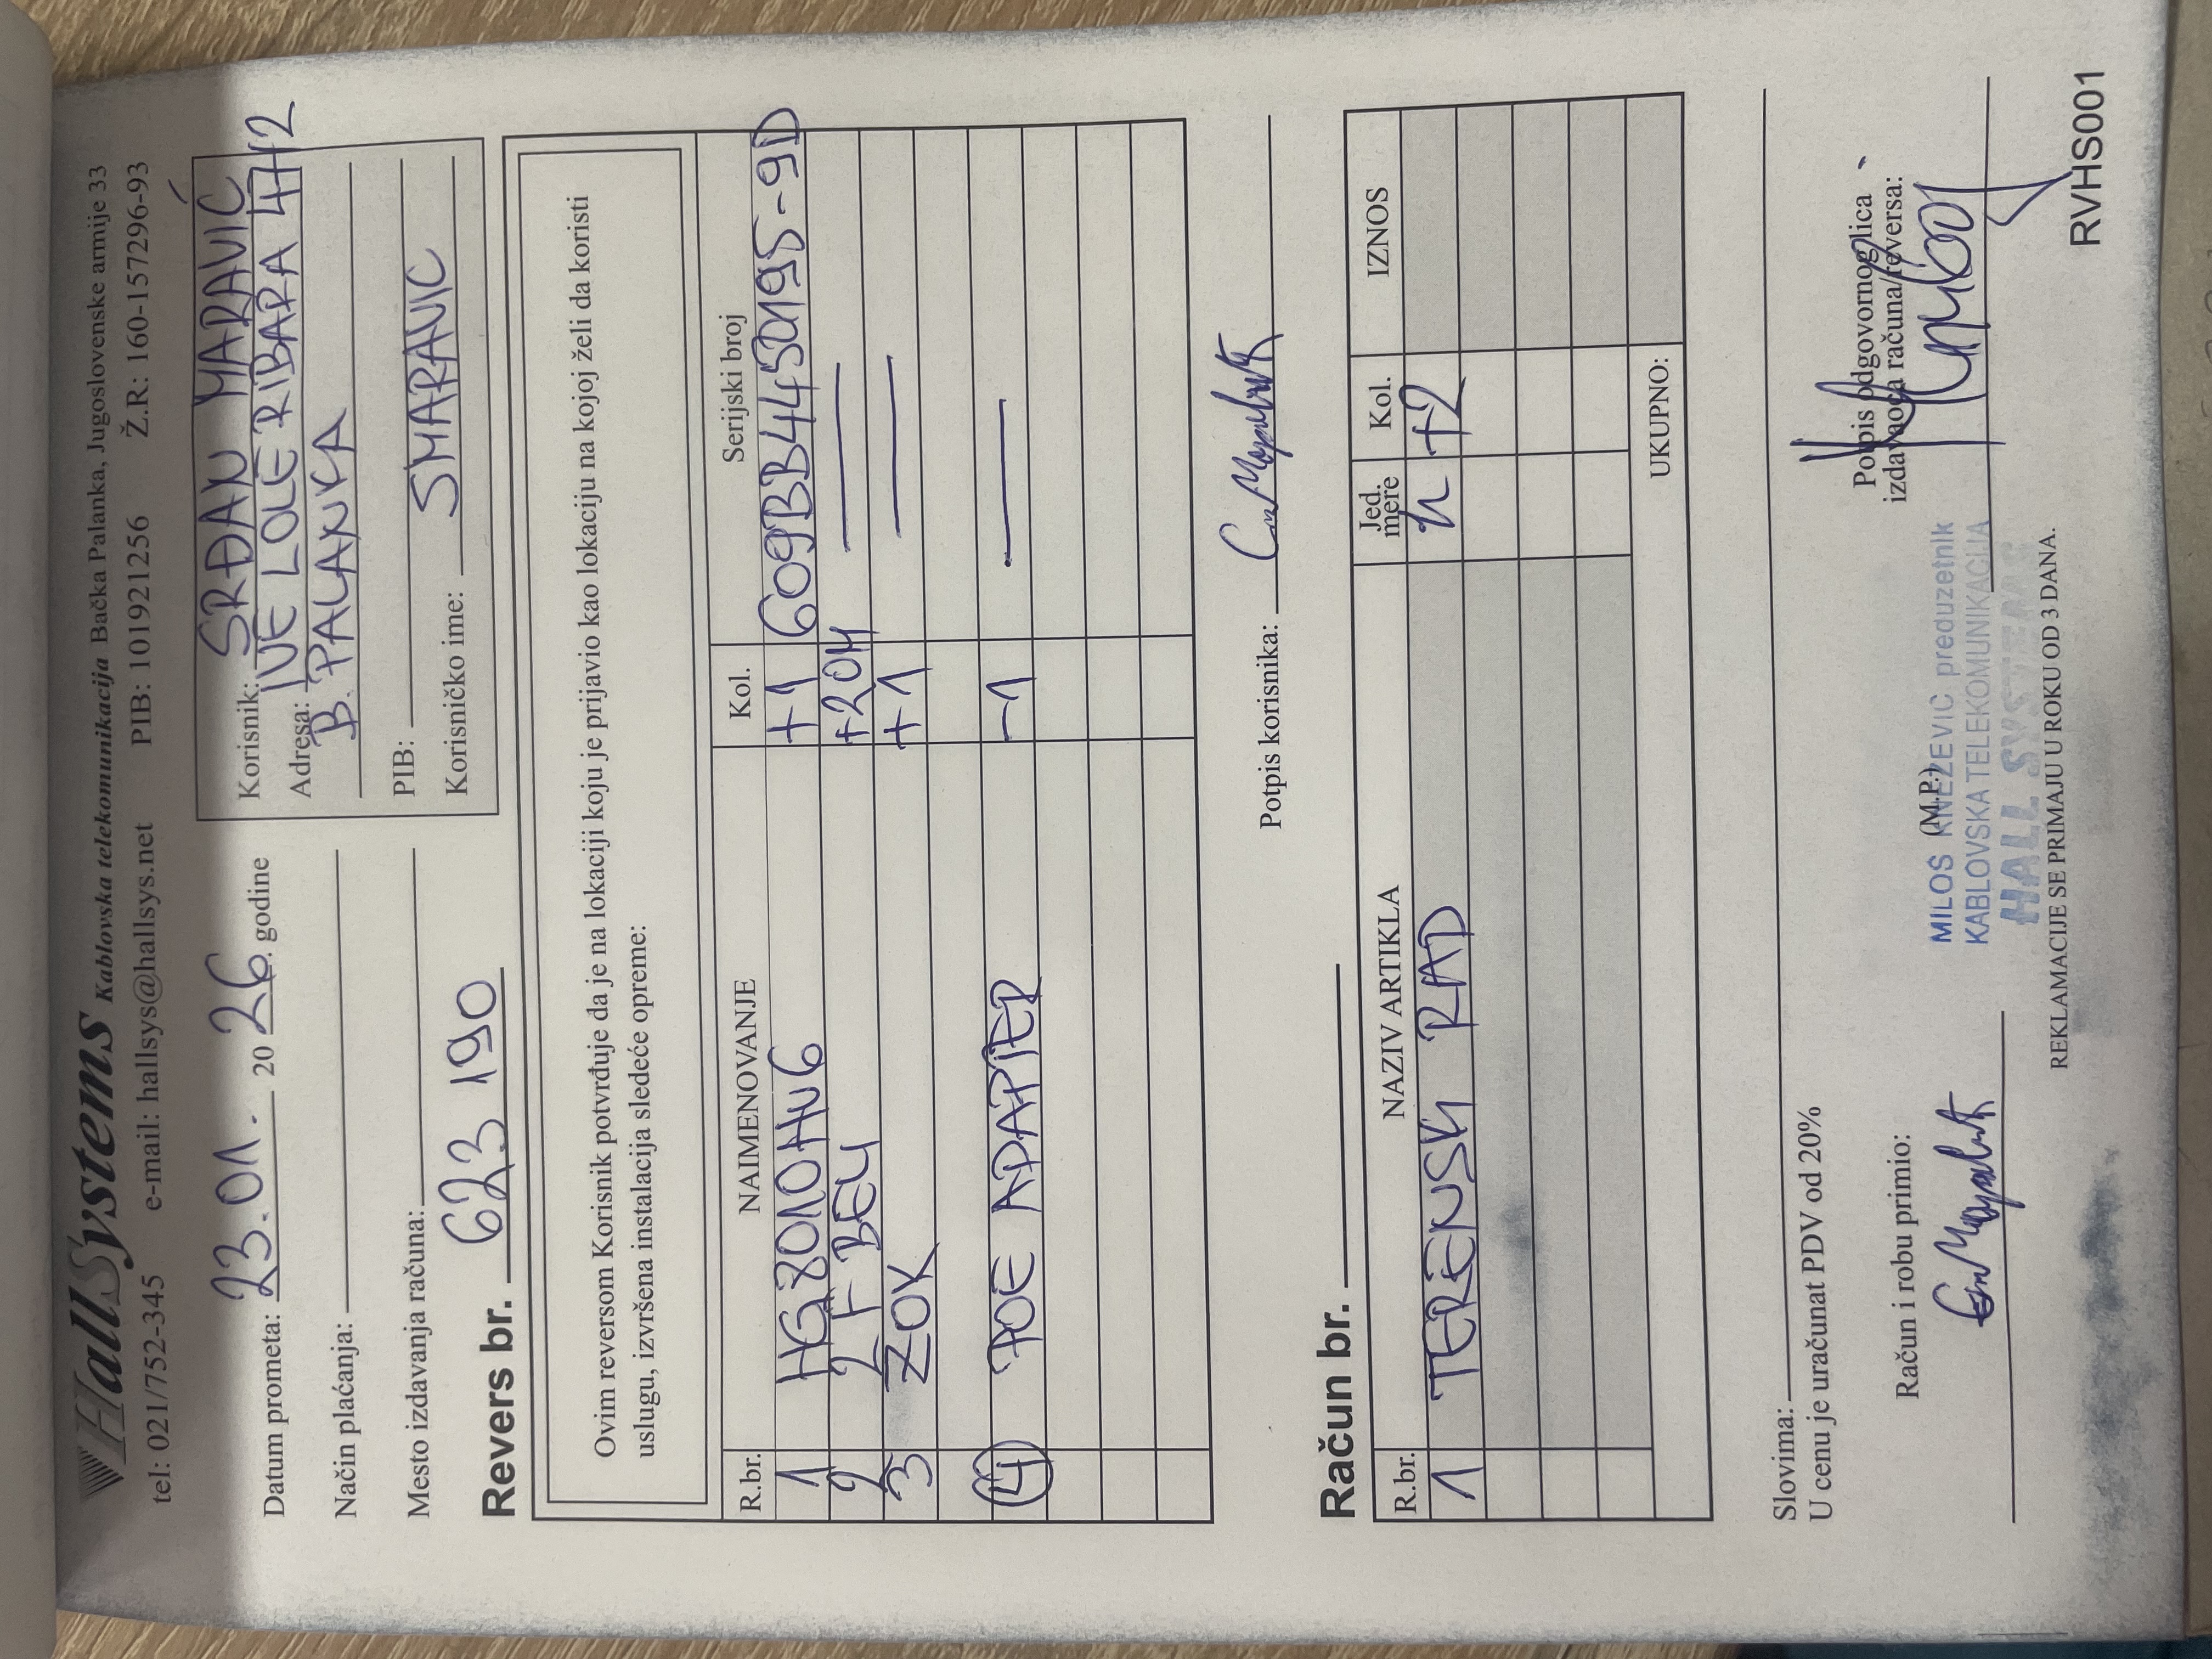 HallSystems Kablovska telekomunikacija Bačka Palanka, Jugoslovenske armije 33
tel: 021/752-345 e-mail: hallsys@hallsys.net PIB: 101921256 Ž.R: 160-157296-93
Datum prometa: 23.01. 20 26. godine
Način plaćanja:
Mesto izdavanja računa:
Revers br. 623 190
Korisnik: SRĐAN MARAVIĆ
Adresa: IVE LOLE RIBARA
B. PALANKA
PIB:
Korisničko ime: SMARAVIC
Ovim reversom Korisnik potvrđuje da je na lokaciji koju je prijavio kao lokaciju na kojoj želi da koristi
uslugu, izvršena instalacija sledeće opreme:
R.br. NAIMENOVANJE Kol. Serijski broj
1 HG8010HV6 +1 609BB4450195-9D
2 2F BELI +20M
3 ZOK +1
4 POE ADAPTER -1
Potpis korisnika:
Račun br.
R.br. NAZIV ARTIKLA Jed. mere Kol. IZNOS
1 TERENSKI RAD h +2
UKUPNO:
Slovima:
U cenu je uračunat PDV od 20%
Račun i robu primio:
(M.P.)
MILOS KNEZEVIC preduzetnik
KABLOVSKA TELEKOMUNIKACIJA
HALL SYSTEMS
Potpis odgovornog lica
izdavaoca računa/reversa:
REKLAMACIJE SE PRIMAJU U ROKU OD 3 DANA.
RVHS001